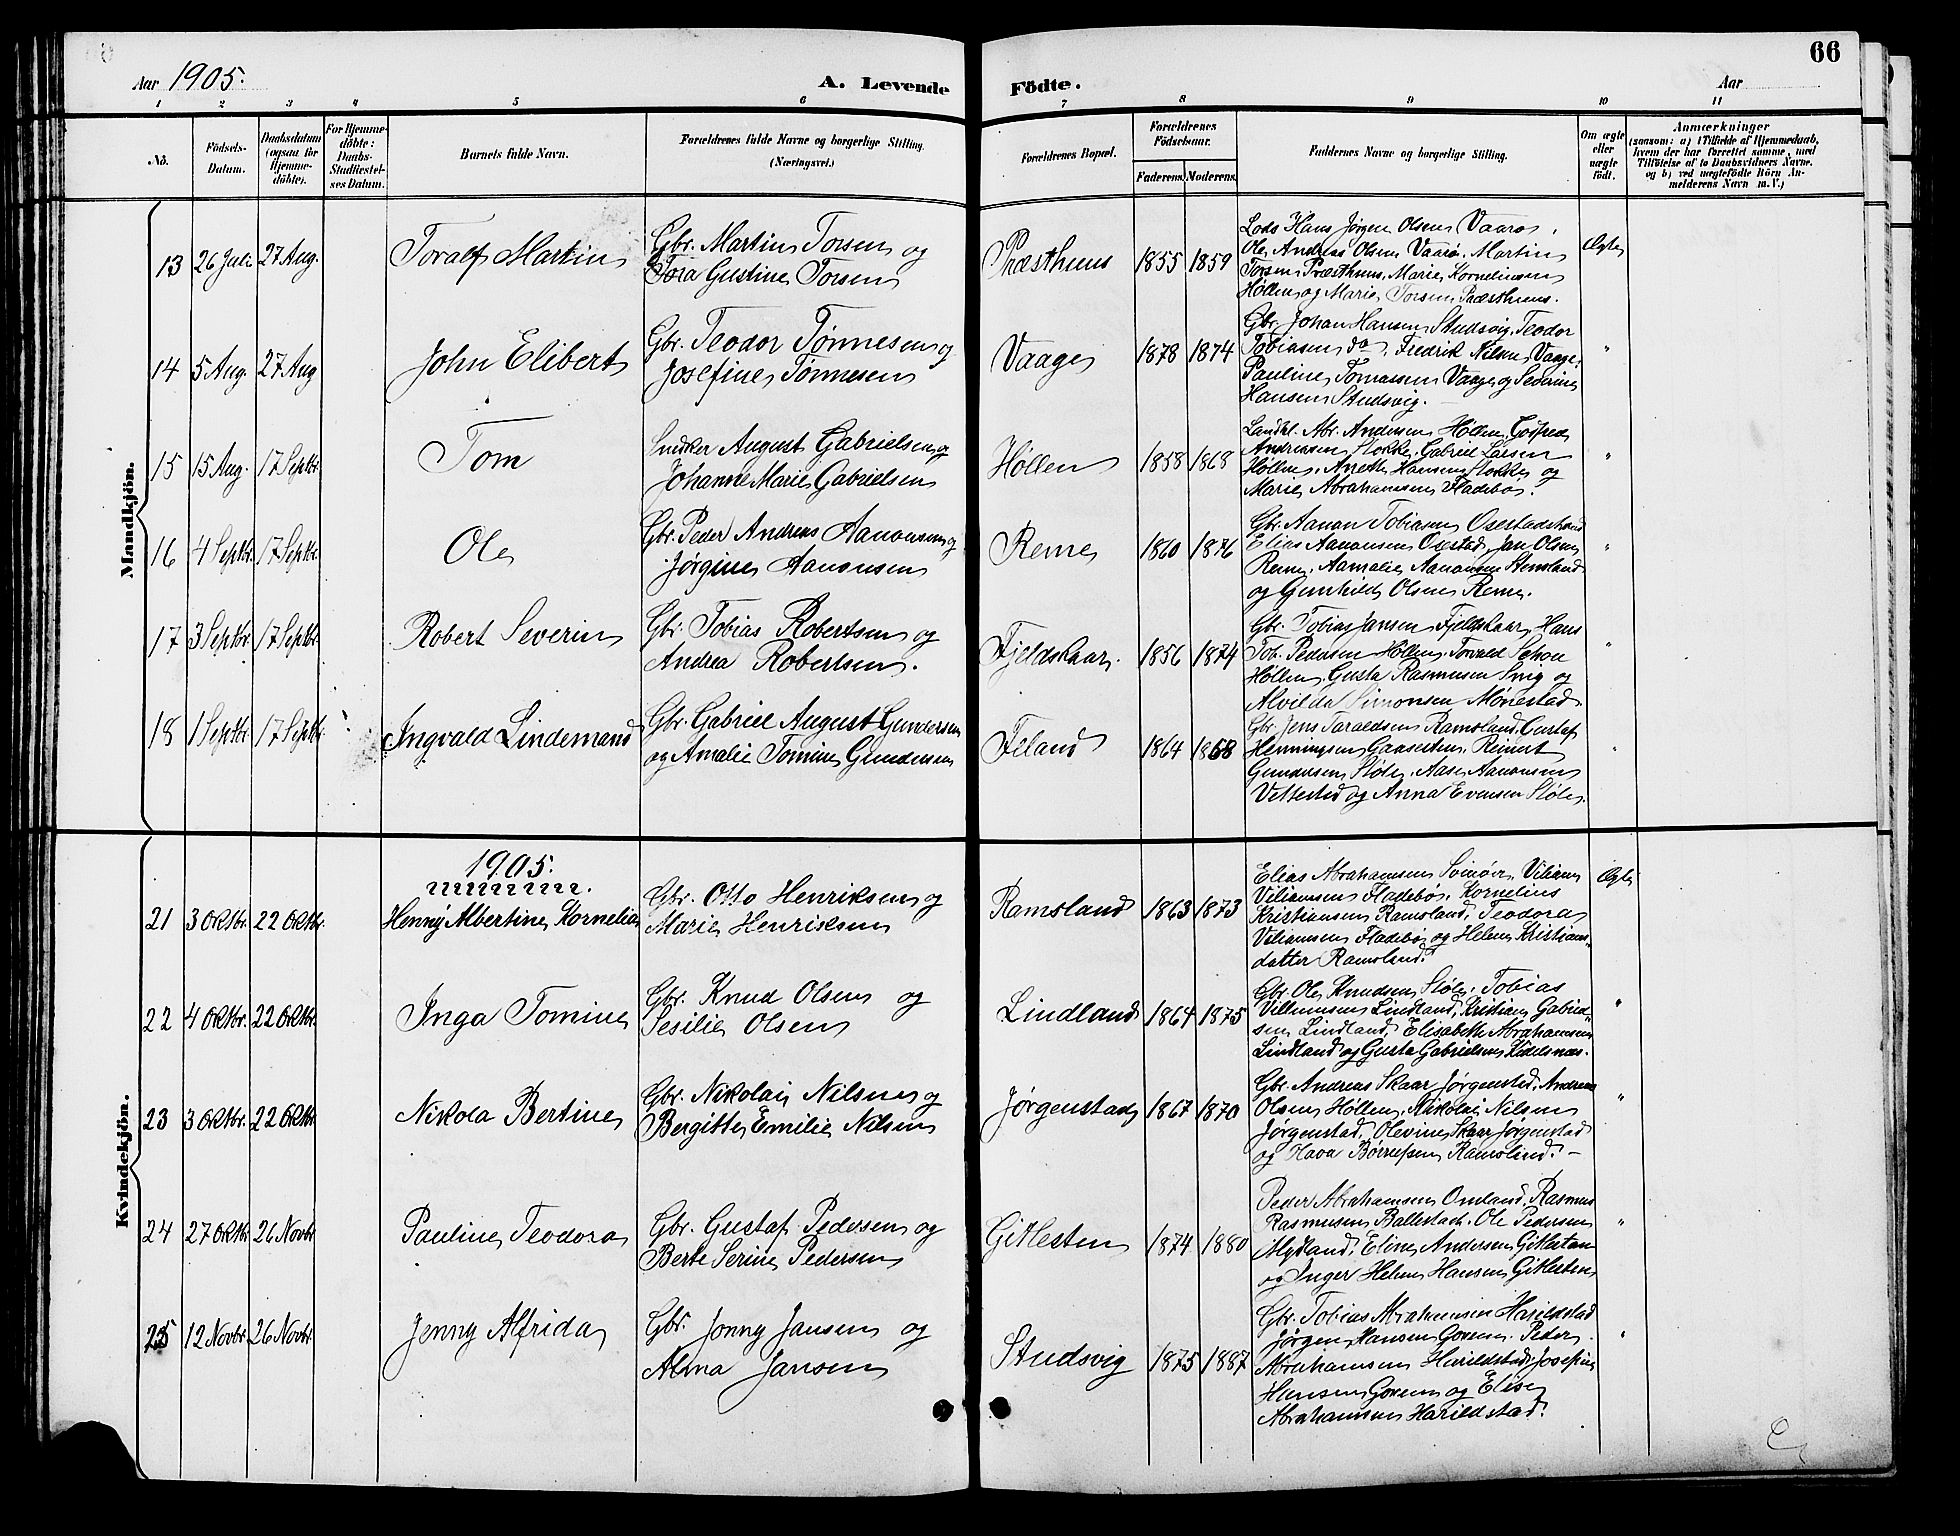 66
Aar 1905.
A. Levende Födte.
Aar
1 2 3 4 5 6 7 8 9 10 11
No.
Födsels-
Datum.
Daabsdatum
(ogsaa for
Hjemme-
döbte).
For Hjemme-
döbte:
Daabs-
Stadfæstel-
ses Datum.
Barnets fulde Navn.
Forældrenes fulde Navne og borgerlige Stilling.
(Næringsvei.)
Forældrenes Bopæl.
Forældrenes
Födselsaar.
Faderens. Moderens.
Faddernes Navne og borgerlige Stilling.
Om ægte
eller
uægte
födt.
Anmærkninger
(saasom: a) i Tilfælde af Hjemmedaab,
hvem der har forrettet samme, med
Tilföielse af to Daabsvidners Navne.
og b) ved uægtefödte Börn An-
melderens Navn m. V.)
Mandkjön.
13 26 Juli 27 Aug. Toralf Martin
Gbr. Martin Torsen og
Tora Gustine Torsen
Præsthuus 1855 1859
Lods Hans Jørgen Olsen Vaarø,
Ole Andreas Olsen Vaarø, Martin
Torsen Præsthuus, Marie Kornelinsen
Høllen og Marie Torsen Præsthuus.
Ægte
14 5 Aug. 27 Aug John Elibert
Gbr. Teodor Tønnesen og
Josefine Tønnesen
Vaage 1878 1874
Gbr. Johan Hansen Studsvig, Teodor
Tobiasen do, Fredrik Nilsen Vaage,
Pauline Tomassen Vaage og Severine
Hansen Studsvig.
"
15 15 Aug. 17 Septbr. Tom
Snedker August Gabrielsen og
Johanne Marie Gabrielsen
Høllen 1858 1868
Landhl. Abr. Andersen Høllen, Gotfred
Andreasen Stokke, Gabriel Larsen
Høllen, Anette Hansen Stokke og
Marie Abrahamsen Fladebø.
"
16 4 Septbr. 17 Septbr. Ole
Gbr. Peder Andreas Aanonsen og
Jørgine Aanonsen
Reme 1860 1876
Gbr. Aanon Tobiasen Osestad
Elias Aanonsen Osestad, Jan Olsen
Reme, Aamalie Aanonsen Stensland
og Gunhild Olsen Reme.
"
17 3 Septbr. 17 Septbr. Robert Severin
Gbr. Tobias Robertsen og
Andrea Robertsen.
Fjeldskaar. 1856 1874
Gbr. Tobias Jansen Fjeldskaar, Hans
Tob. Pedersen Høllen, Torvald
Høllen, Gusta Rasmusen Snig og
Alvilda Simonsen Mønestad.
"
18 1 Septbr. 17 Septbr. Ingvald Lindemand
Gbr. Gabriel August Gundersen
og Amalie Tomine Gundersen
Feland 1864 1868
Gbr. Jens Taraldsen Ramsland, Gustaf
Henningsen Gaasesten, Reinert
Gundersen Støle, Aase Aanonsen
Vettestad og Anna Evensen Støle.
"
Kvindekjön.
1905.
21 3 Oktbr. 22 Oktbr. Henny Albertine Kornelia
Gbr. Otto Henriksen og
Marie Henriksen
Ramsland 1863 1873
Elias Abrahamsen, Viliam
Viliamsen Fladebø, Kornelius
Kristiansen Ramsland, Teodora
Viliamsen Fladebø og Helene Kristians-
datter Ramsland.
Ægte
22 4 Oktbr. 22 Oktbr. Inga Tomine
Gbr. Knud Olsen og
Sesilie Olsen
Lindland 1864 1875
Gbr. Ole Knudsen Støle, Tobias
Villumsen Lindland, Kristian Gabriel-
sen Lindland, Elisabeth Abrahamsen
Lindland og Gusta Gabrielsen Kidelsnæs.
"
23 3 Oktbr. 22 Oktbr. Nikola Bertine
Gbr. Nikolai Nilsen og
Bergitte Emilie Nilsen
Jørgenstad 1867 1870
Gbr. Andreas Skaar Jørgenstad, Andreas
Olsen Høllen, Nikolai Nilsen
Jørgenstad, Olevine Skaar Jørgenstad
og Hava Børresen Ramsland. —
"
24 27 Oktbr. 26 Novbr Pauline Teodora
Gbr. Gustaf Pedersen og
Berte Serine Pedersen
Gitlesten 1874 1880
Peder Abrahamsen Omland, Rasmus
Rasmusen Ballestad, Ole Pedersen
Mydland, Eline Andersen Gitlestan
og Inger Helene Hansen Gitlesten
"
25 12 Novbr. 26 Novbr. Jenny Alfrida
Gbr. Jonny Jansen og
Alma Jansen
Studsvig 1875 1887
Gbr. Tobias Abrahamsen Harildstad
Jørgen Hansen Goven, Peder
Abrahamsen Harildstad, Josefine
Hansen Goven og Elise
Abrahamsen Harildstad.
"